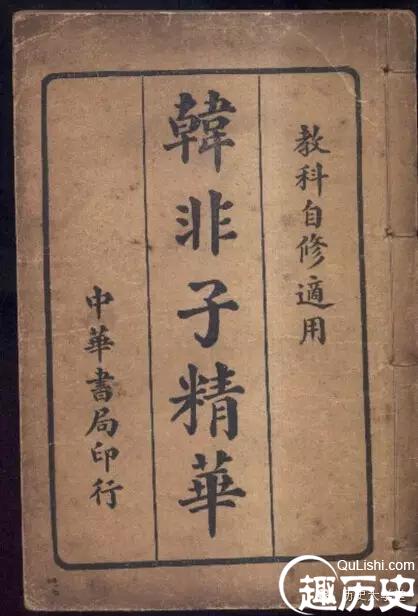 教科自修適用
韓非子精華
中華書局印行
QuLishi.com
趣历史